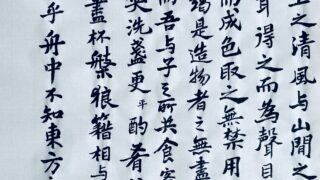 上之清風与山間之
耳得之而為聲目
而成色取之無禁用
竭是造物者之無盡
而吾与子之所共食客
笑洗盞更平酌肴
盡杯槃狼籍相与
乎舟中不知東方